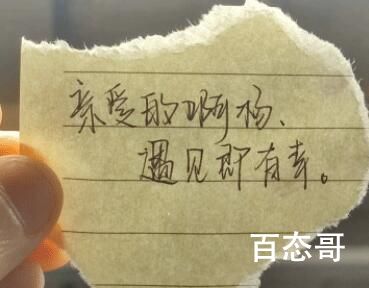 亲爱的啊杨、
遇见即有幸。
百态哥